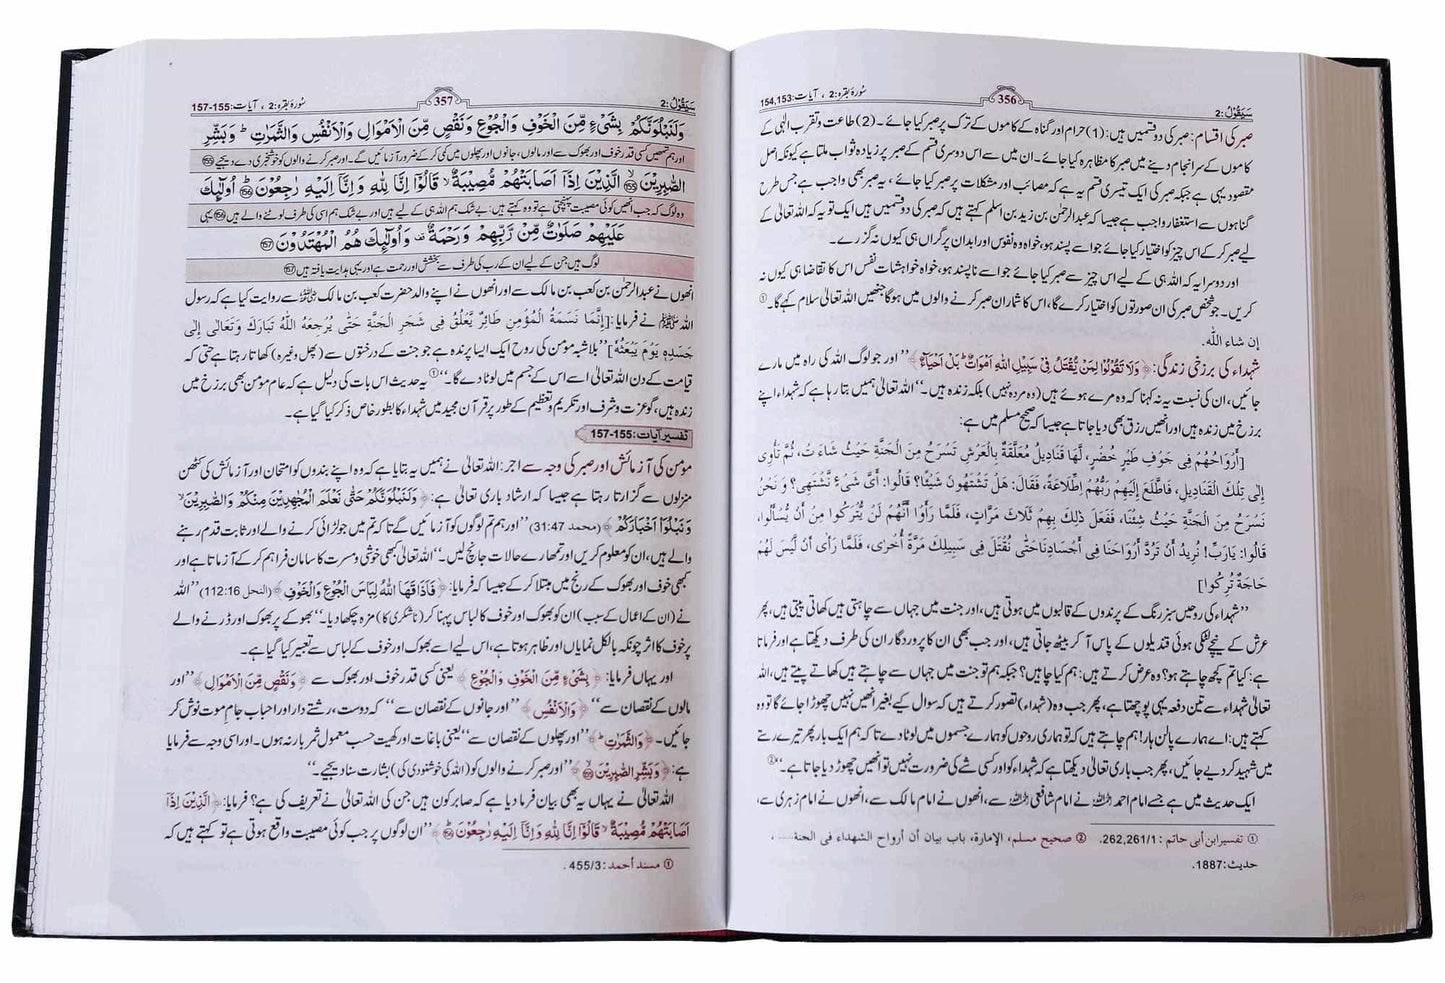 سَیَقُولُ:2
356
سُورۂ بقرہ:2 ، آیات:154,153
صبر کی اقسام: صبر کی دو قسمیں ہیں: (1) حرام اور گناہ کے کاموں کے ترک پر صبر کیا جائے۔ (2) طاعت و تقرب الٰہی کے
کاموں کے سرانجام دینے میں صبر کا مظاہرہ کیا جائے۔ ان میں سے اس دوسری قسم کے صبر پر زیادہ ثواب ملتا ہے کیونکہ اصل
مقصود یہی ہے جبکہ صبر کی ایک تیسری قسم یہ ہے کہ مصائب اور مشکلات پر صبر کیا جائے، یہ صبر بھی واجب ہے جس طرح
گناہوں سے استغفار واجب ہے جیسا کہ عبدالرحمٰن بن زید بن اسلم کہتے ہیں کہ صبر کی دو قسمیں ہیں ایک تو یہ کہ اللہ تعالیٰ کے
لیے صبر کر کے اس چیز کو اختیار کیا جائے جو اسے پسند ہو، خواہ وہ نفوس اور ابدان پر گراں ہی کیوں نہ گزرے۔
اور دوسرا یہ کہ اللہ ہی کے لیے اس چیز سے صبر کیا جائے جو اسے ناپسند ہو، خواہ خواہشات نفس اس کا تقاضا ہی کیوں نہ
کریں۔ جو شخص صبر کی ان صورتوں کو اختیار کرے گا، اس کا شمار ان صبر کرنے والوں میں ہوگا جنھیں اللہ تعالیٰ سلام کہے گا۔①
إن شاء اللّٰہ.
شہداء کی برزخی زندگی: ﴿ وَلَا تَقُوْلُوْا لِمَنْ يُّقْتَلُ فِيْ سَبِيْلِ اللّٰهِ اَمْوَاتٌ ۭ بَلْ اَحْيَاۗءٌ ﴾ ’’اور جو لوگ اللہ کی راہ میں مارے
جائیں، ان کی نسبت یہ نہ کہنا کہ وہ مرے ہوئے ہیں (وہ مردہ نہیں) بلکہ زندہ ہیں۔‘‘ اللہ تعالیٰ ہمیں بتا رہا ہے کہ شہداء اپنے
برزخ میں زندہ ہیں اور انھیں رزق بھی دیا جاتا ہے جیسا کہ صحیح مسلم میں ہے:
[أَرْوَاحُهُمْ فِي جَوْفِ طَيْرٍ خُضْرٍ، لَهَا قَنَادِيلُ مُعَلَّقَةٌ بِالْعَرْشِ تَسْرَحُ مِنَ الْجَنَّةِ حَيْثُ شَاءَتْ، ثُمَّ تَأْوِي
إِلَى تِلْكَ الْقَنَادِيلِ، فَاطَّلَعَ إِلَيْهِمْ رَبُّهُمْ إِطِّلَاعَةً، فَقَالَ: هَلْ تَشْتَهُونَ شَيْئًا؟ قَالُوا: أَيَّ شَيْءٍ نَشْتَهِي؟ وَنَحْنُ
نَسْرَحُ مِنَ الْجَنَّةِ حَيْثُ شِئْنَا، فَفَعَلَ ذٰلِكَ بِهِمْ ثَلَاثَ مَرَّاتٍ، فَلَمَّا رَأَوْا أَنَّهُمْ لَنْ يُتْرَكُوا مِنْ أَنْ يُسْأَلُوا،
قَالُوا: يَارَبِّ! نُرِيدُ أَنْ تَرُدَّ أَرْوَاحَنَا فِي أَجْسَادِنَا حَتّٰى نُقْتَلَ فِي سَبِيلِكَ مَرَّةً أُخْرَى، فَلَمَّا رَأَى أَنْ لَيْسَ لَهُمْ
حَاجَةٌ تُرِكُوا]
’’شہداء کی روحیں سبز رنگ کے پرندوں کے قالبوں میں ہوتی ہیں، اور جنت میں جہاں سے چاہتی ہیں کھاتی پیتی ہیں، پھر
عرش کے نیچے لٹکی ہوئی قندیلوں کے پاس آ کر بیٹھ جاتی ہیں، اور جب بھی ان کا پروردگار ان کی طرف دیکھتا ہے اور فرماتا
ہے: کیا تم کچھ چاہتے ہو؟ وہ عرض کرتے ہیں: ہم کیا چاہیں؟ جبکہ ہم تو جنت میں جہاں سے چاہتے ہیں کھاتے پیتے ہیں، اللہ
تعالیٰ شہداء سے تین دفعہ یہی پوچھتا ہے، پھر جب وہ (شہداء) تصور کرتے ہیں کہ سوال کیے بغیر انھیں نہیں چھوڑا جائے گا تو وہ
کہتے ہیں: اے ہمارے پالن ہار! ہم چاہتے ہیں کہ تو ہماری روحوں کو ہمارے جسموں میں لوٹا دے تا کہ ہم ایک بار پھر تیرے رستے
میں شہید کر دیے جائیں، پھر جب باری تعالیٰ دیکھتا ہے کہ شہداء کو اور کسی شے کی ضرورت نہیں تو انھیں چھوڑ دیا جاتا ہے۔‘‘②
ایک حدیث میں ہے جسے امام احمد رحمہ اللہ نے امام شافعی رحمہ اللہ سے، انھوں نے امام مالک سے، انھوں نے امام زہری سے،
① تفسير ابن أبي حاتم : 262,261/1. ② صحيح مسلم، الإمارة، باب بيان أن أرواح الشهداء في الجنة......،
حديث:1887.
سَیَقُولُ:2
357
سُورۂ بقرہ:2 ، آیات:155-157
وَلَنَبْلُوَنَّكُمْ بِشَيْءٍ مِّنَ الْخَوْفِ وَالْجُوْعِ وَنَقْصٍ مِّنَ الْاَمْوَالِ وَالْاَنْفُسِ وَالثَّمَرٰتِ ۭ وَبَشِّرِ
اور ہم تمھیں کسی قدر خوف اور بھوک سے اور مالوں، جانوں اور پھلوں میں کمی کر کے ضرور آزمائیں گے۔ اور صبر کرنے والوں کو خوشخبری دے دیجیے ⑮⑤
الصّٰبِرِيْنَ ⑮⑤ الَّذِيْنَ اِذَآ اَصَابَتْهُمْ مُّصِيْبَةٌ ۙ قَالُوْٓا اِنَّا لِلّٰهِ وَاِنَّآ اِلَيْهِ رٰجِعُوْنَ ⑮⑥ اُولٰۗىِٕكَ
وہ لوگ کہ جب انھیں کوئی مصیبت پہنچتی ہے تو وہ کہتے ہیں: بے شک ہم اللہ ہی کے لیے ہیں اور بے شک ہم اسی کی طرف لوٹنے والے ہیں ⑮⑥ یہی
عَلَيْهِمْ صَلَوٰتٌ مِّنْ رَّبِّهِمْ وَرَحْمَةٌ ۣ وَاُولٰۗىِٕكَ هُمُ الْمُهْتَدُوْنَ ⑮⑦
لوگ ہیں جن کے لیے ان کے رب کی طرف سے بخشش اور رحمت ہے اور یہی ہدایت یافتہ ہیں ⑮⑦
انھوں نے عبدالرحمٰن بن کعب بن مالک سے اور انھوں نے اپنے والد حضرت کعب بن مالک رضی اللہ عنہ سے روایت کیا ہے کہ رسول
اللہ ﷺ نے فرمایا: [إِنَّمَا نَسَمَةُ الْمُؤْمِنِ طَائِرٌ يَعْلُقُ فِي شَجَرِ الْجَنَّةِ حَتّٰى يُرْجِعَهُ اللّٰهُ تَبَارَكَ وَتَعَالَى إِلَى
جَسَدِهِ يَوْمَ يَبْعَثُهُ] ’’بلاشبہ مومن کی روح ایک ایسا پرندہ ہے جو جنت کے درختوں سے (پھل وغیرہ) کھاتا رہتا ہے حتی کہ
قیامت کے دن اللہ تعالیٰ اسے اس کے جسم میں لوٹا دے گا۔‘‘① یہ حدیث اس بات کی دلیل ہے کہ عام مومن بھی برزخ میں
زندہ ہیں، گو عزت و شرف اور تکریم و تعظیم کے طور پر قرآن مجید میں شہداء کا بطور خاص ذکر کیا گیا ہے۔
تفسیر آیات:155-157
مؤمن کی آزمائش اور صبر کی وجہ سے اجر: اللہ تعالیٰ نے ہمیں یہ بتایا ہے کہ وہ اپنے بندوں کو امتحان اور آزمائش کی کٹھن
منزلوں سے گزارتا رہتا ہے جیسا کہ ارشاد باری تعالیٰ ہے: ﴿ وَلَنَبْلُوَنَّكُمْ حَتّٰى نَعْلَمَ الْمُجٰهِدِيْنَ مِنْكُمْ وَالصّٰبِرِيْنَ ۙ
وَنَبْلُوَا۟ اَخْبَارَكُمْ ﴾ (محمد 31:47) ’’اور ہم تم لوگوں کو آزمائیں گے تا کہ تم میں جو لڑائی کرنے والے اور ثابت قدم رہنے
والے ہیں، ان کو معلوم کریں اور تمھارے حالات جانچ لیں۔‘‘ اللہ تعالیٰ کبھی خوشی و مسرت کا سامان فراہم کر کے آزماتا ہے اور
کبھی خوف اور بھوک کے رنج میں مبتلا کر کے جیسا کہ فرمایا: ﴿ فَاَذَاقَهَا اللّٰهُ لِبَاسَ الْجُوْعِ وَالْخَوْفِ ﴾ (النحل 112:16) ’’اللہ
نے (ان کے اعمال کے سبب) ان کو بھوک اور خوف کا لباس پہنا کر (ناشکری کا) مزہ چکھا دیا۔‘‘ بھوکے پر بھوک اور ڈرنے والے
پر خوف کا اثر چونکہ بالکل نمایاں اور ظاہر ہوتا ہے، اس لیے اسے بھوک اور خوف کے لباس سے تعبیر کیا گیا ہے۔
اور یہاں فرمایا: ﴿ بِشَيْءٍ مِّنَ الْخَوْفِ وَالْجُوْعِ ﴾ یعنی کسی قدر خوف اور بھوک سے ﴿ وَنَقْصٍ مِّنَ الْاَمْوَالِ ﴾ ’’اور
مالوں کے نقصان سے‘‘ ﴿ وَالْاَنْفُسِ ﴾ ’’اور جانوں کے نقصان سے‘‘ کہ دوست، رشتے دار اور احباب جام موت نوش کر
جائیں۔ ﴿ وَالثَّمَرٰتِ ۭ ﴾ ’’اور پھلوں کے نقصان سے‘‘ یعنی باغات اور کھیت حسب معمول ثمر بار نہ ہوں۔ اور اسی وجہ سے فرمایا
ہے: ﴿ وَبَشِّرِ الصّٰبِرِيْنَ ⑮⑤ ﴾ ’’اور صبر کرنے والوں کو (اللہ کی خوشنودی کی) بشارت سنا دیجیے۔‘‘
اللہ تعالیٰ نے یہاں یہ بھی بیان فرما دیا ہے کہ صابر کون ہیں جن کی اللہ تعالیٰ نے تعریف کی ہے؟ فرمایا: ﴿ الَّذِيْنَ اِذَآ
اَصَابَتْهُمْ مُّصِيْبَةٌ ۙ قَالُوْٓا اِنَّا لِلّٰهِ وَاِنَّآ اِلَيْهِ رٰجِعُوْنَ ⑮⑥ ﴾ ’’ان لوگوں پر جب کوئی مصیبت واقع ہوتی ہے تو کہتے ہیں کہ
① مسند أحمد : 455/3 .